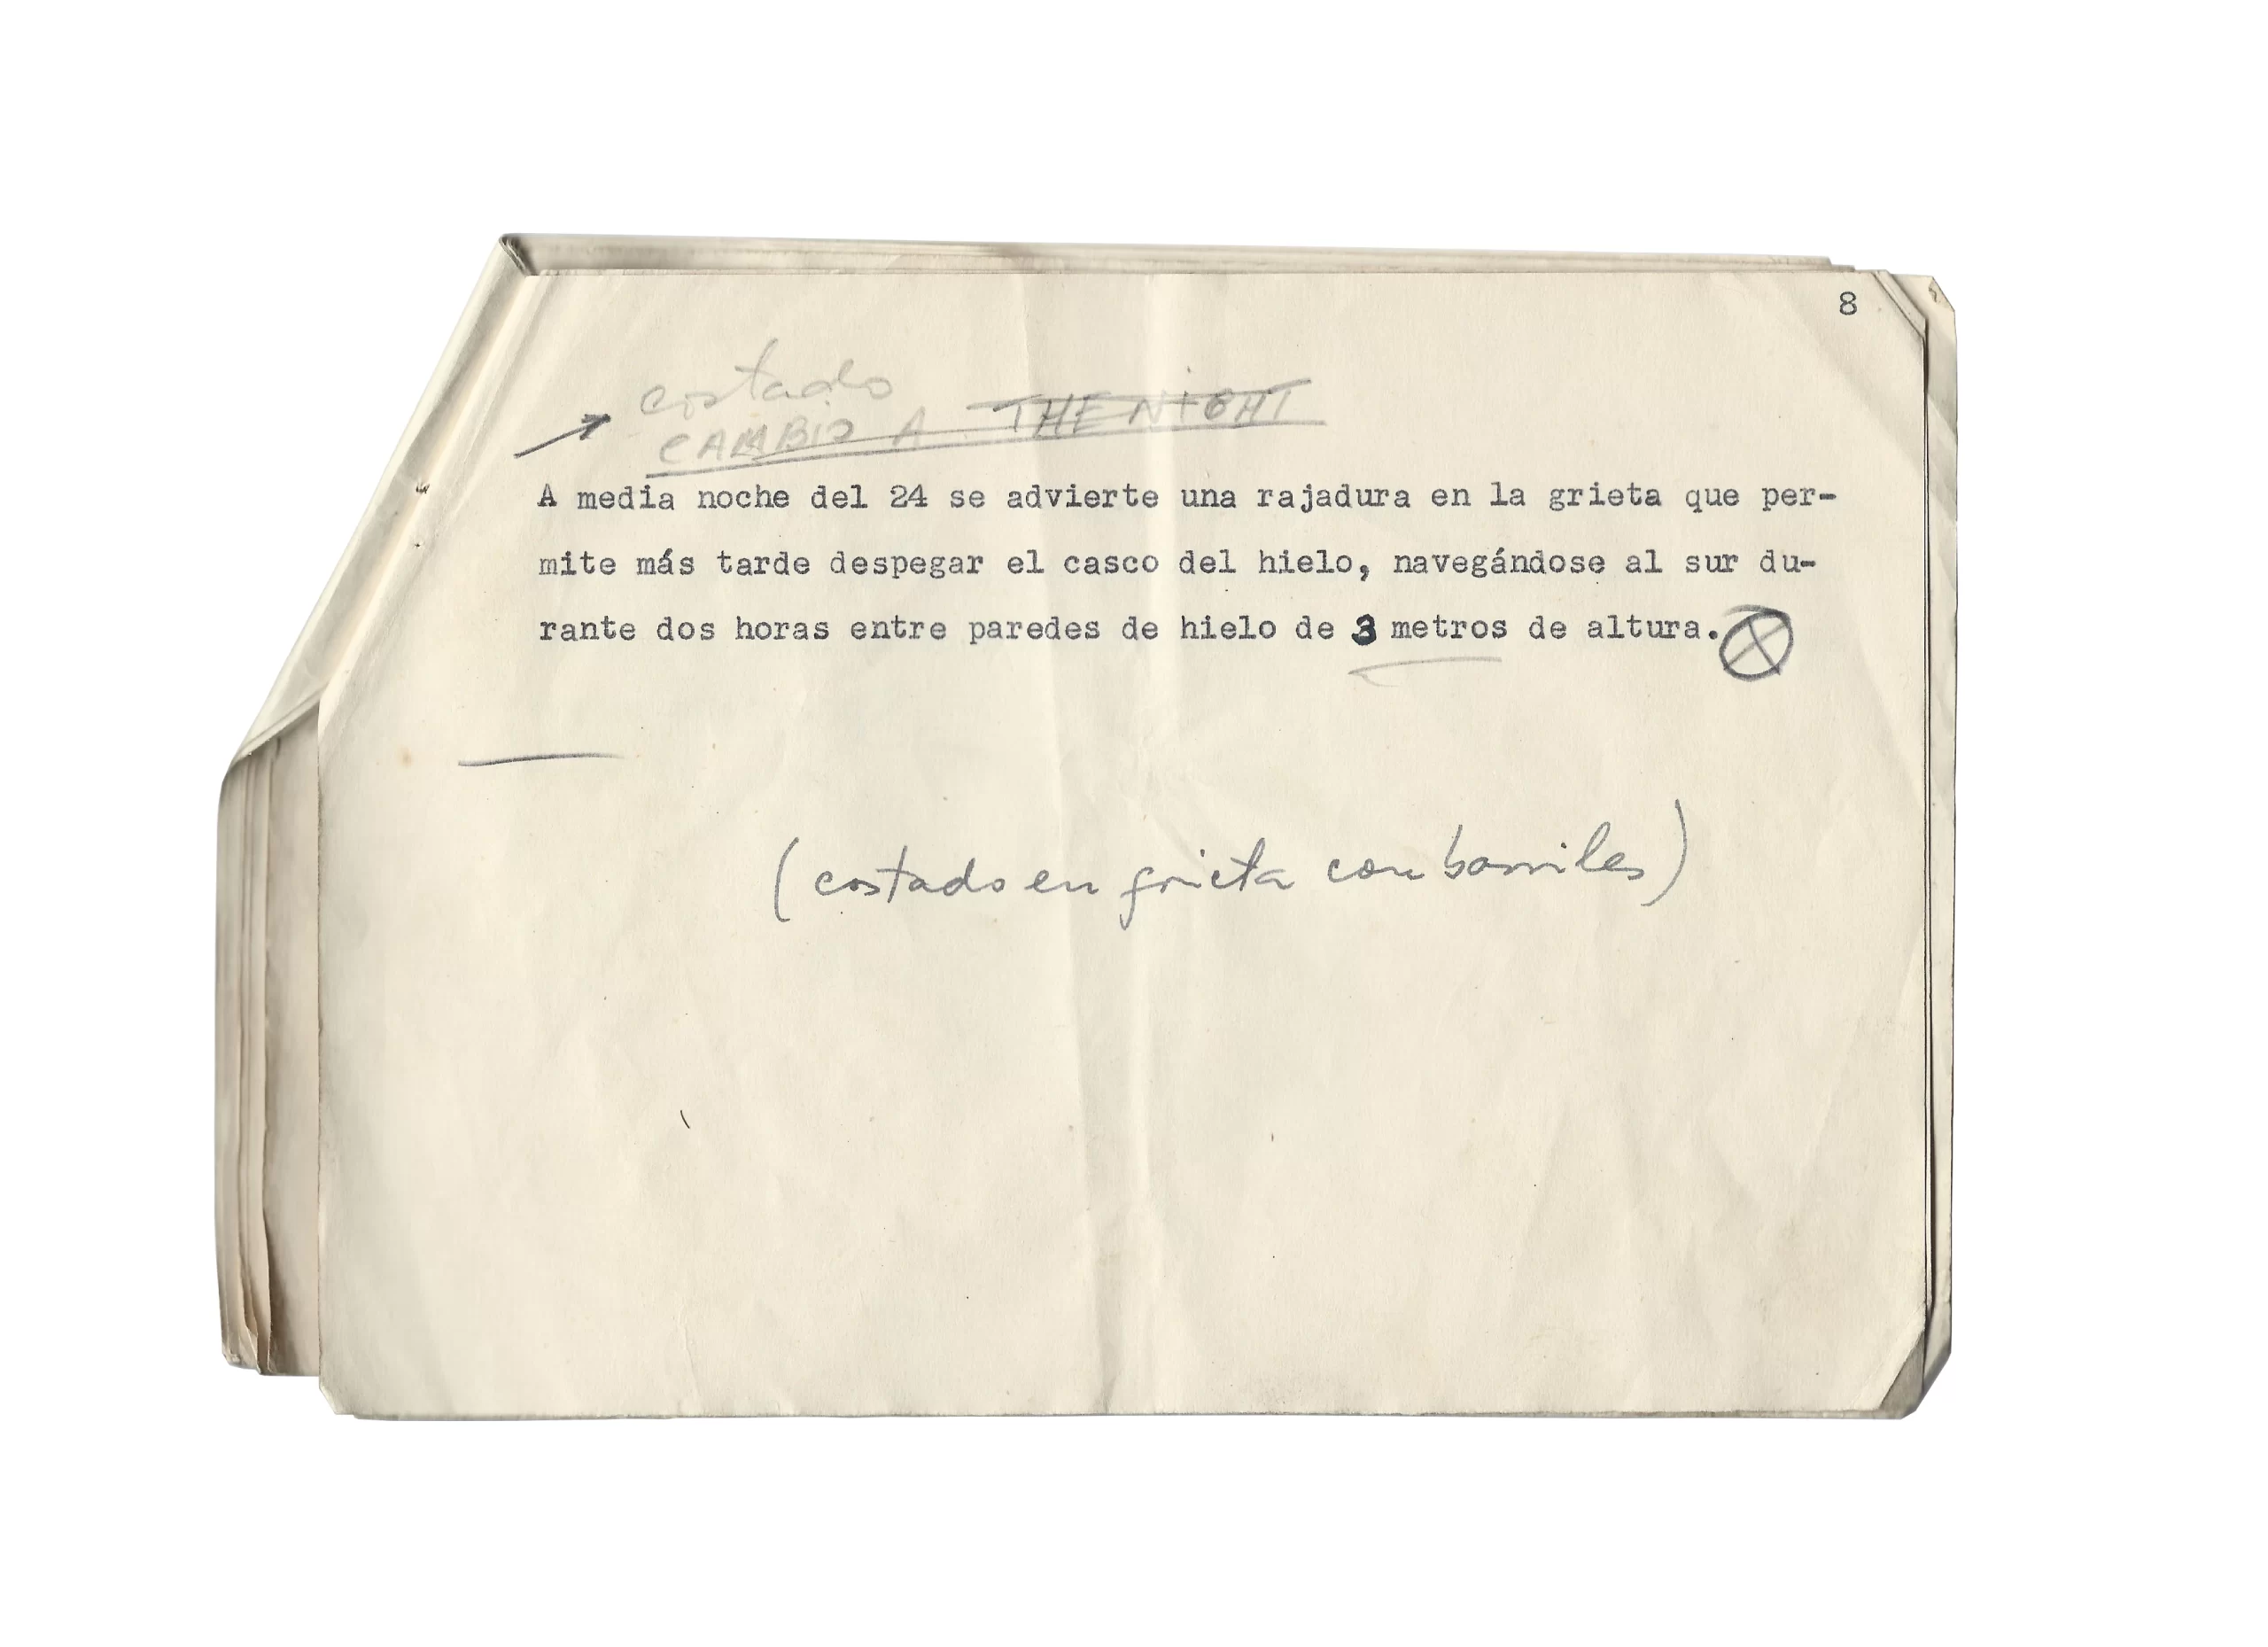 8
costado
CAMBIO A THE NIGHT
A media noche del 24 se advierte una rajadura en la grieta que per-
mite más tarde despegar el casco del hielo, navegándose al sur du-
rante dos horas entre paredes de hielo de 3 metros de altura.
(costado en grieta con barriles)